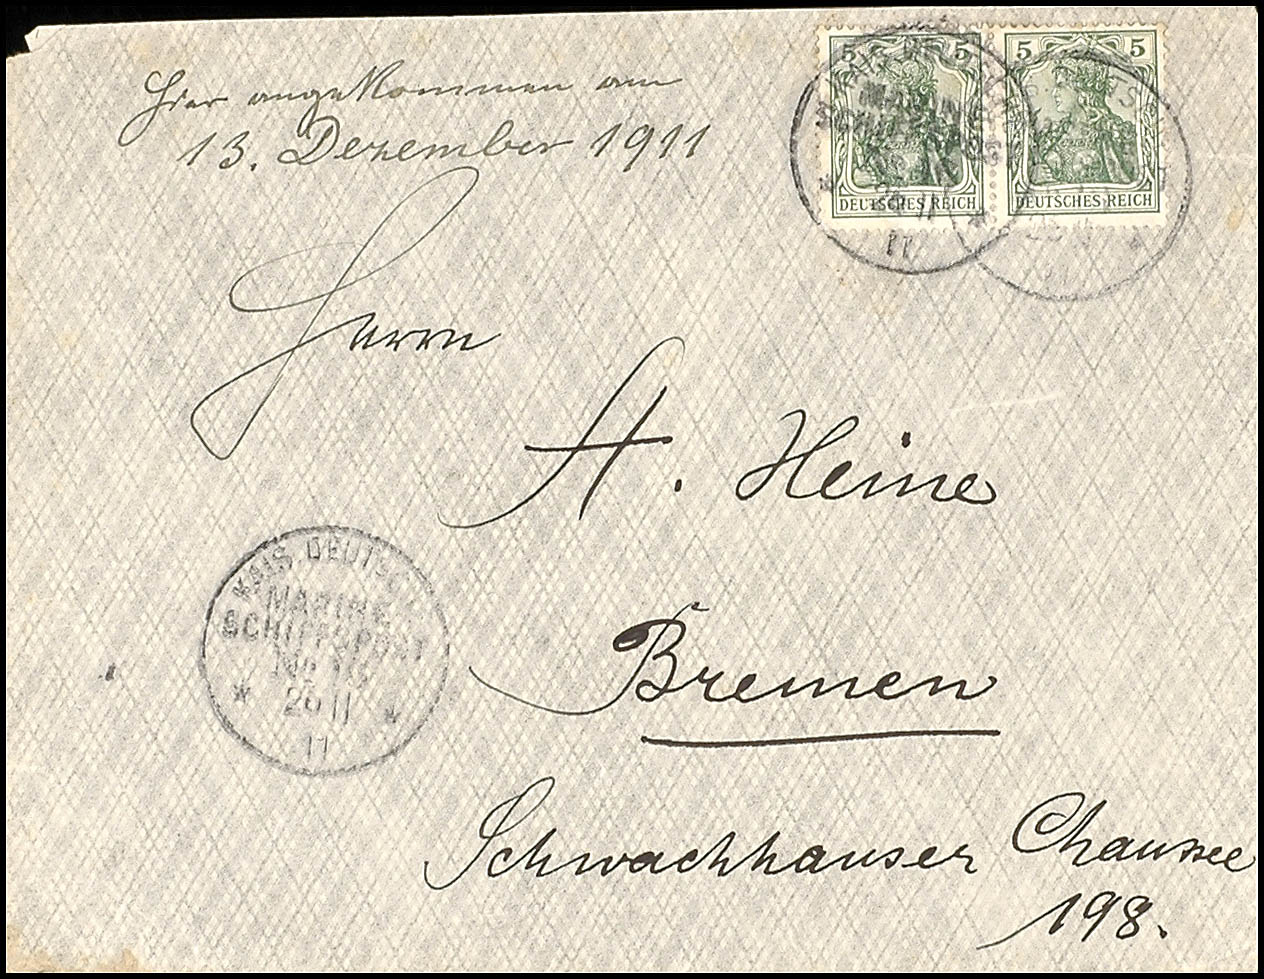 Hier angekommen am
13. Dezember 1911
5 5 5 5
DEUTSCHES REICH DEUTSCHES REICH
Herrn
A. Heine
Bremen
Schwachhauser Chaussee
198.
KAIS. DEUTSCHE
MARINE
SCHIFFSPOST
No
26 11
11